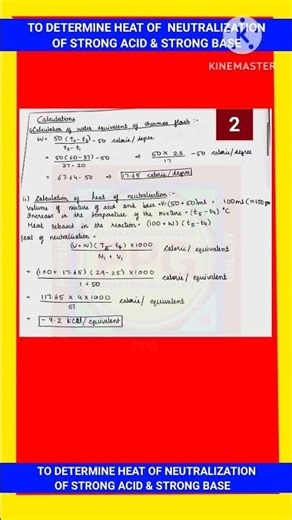 TO DETERMINE HEAT OF NEUTRALIZATION
OF STRONG ACID & STRONG BASE
KINEMASTER
Calculations
2
i) Calculation of water equivalent of thermos flask :-
W = 50 (t₂-t₃) - 50 calorie/degree
t₃-t₁
= 50(60-37) - 50 ⇒ 50 x 23 - 50 calorie/degree
37-20 17
= 67.64-50 ⇒ 17.65 calorie/degree
ii) Calculation of heat of neutralisation :-
Volume of mixture of acid and base = V = (50+50)ml = 100ml
Increase in the temperature of the mixture = (t₅-t₄) °C
Heat released in the reaction = (100+W) (t₅-t₄)
Heat of neutralisation =
(V+W) (t₅-t₄) x1000 calorie / equivalent
N₁ + V₁
= (100+17.65) (29-25) x1000 calorie / equivalent
1 + 50
= 117.65 x 4 x1000 calorie / equivalent
51
= -9.2 KCal/equivalent
TO DETERMINE HEAT OF NEUTRALIZATION
OF STRONG ACID & STRONG BASE